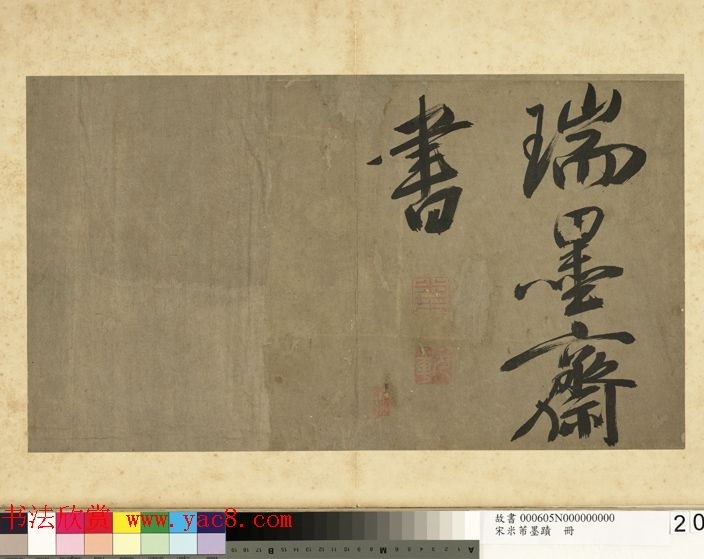 瑞墨齋
書
书法欣赏 www.yac8.com
故書 000605N000000000
宋米芾墨蹟 冊
20